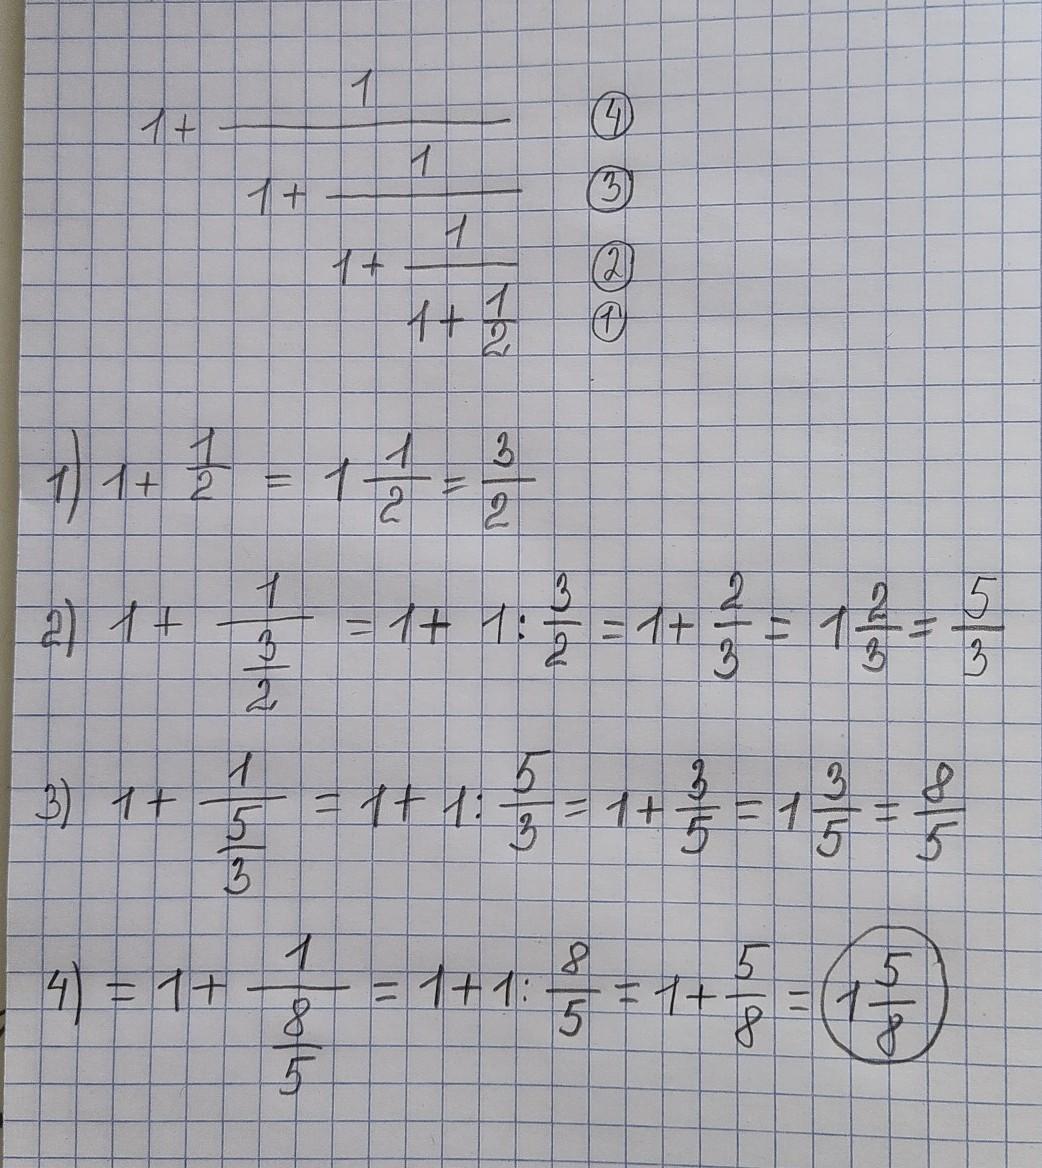 1 + 1/(1 + 1/(1 + 1/(1 + 1/2)))
④
③
②
①
1) 1 + 1/2 = 1 1/2 = 3/2
2) 1 + 1/(3/2) = 1 + 1 : 3/2 = 1 + 2/3 = 1 2/3 = 5/3
3) 1 + 1/(5/3) = 1 + 1 : 5/3 = 1 + 3/5 = 1 3/5 = 8/5
4) = 1 + 1/(8/5) = 1 + 1 : 8/5 = 1 + 5/8 = 1 5/8